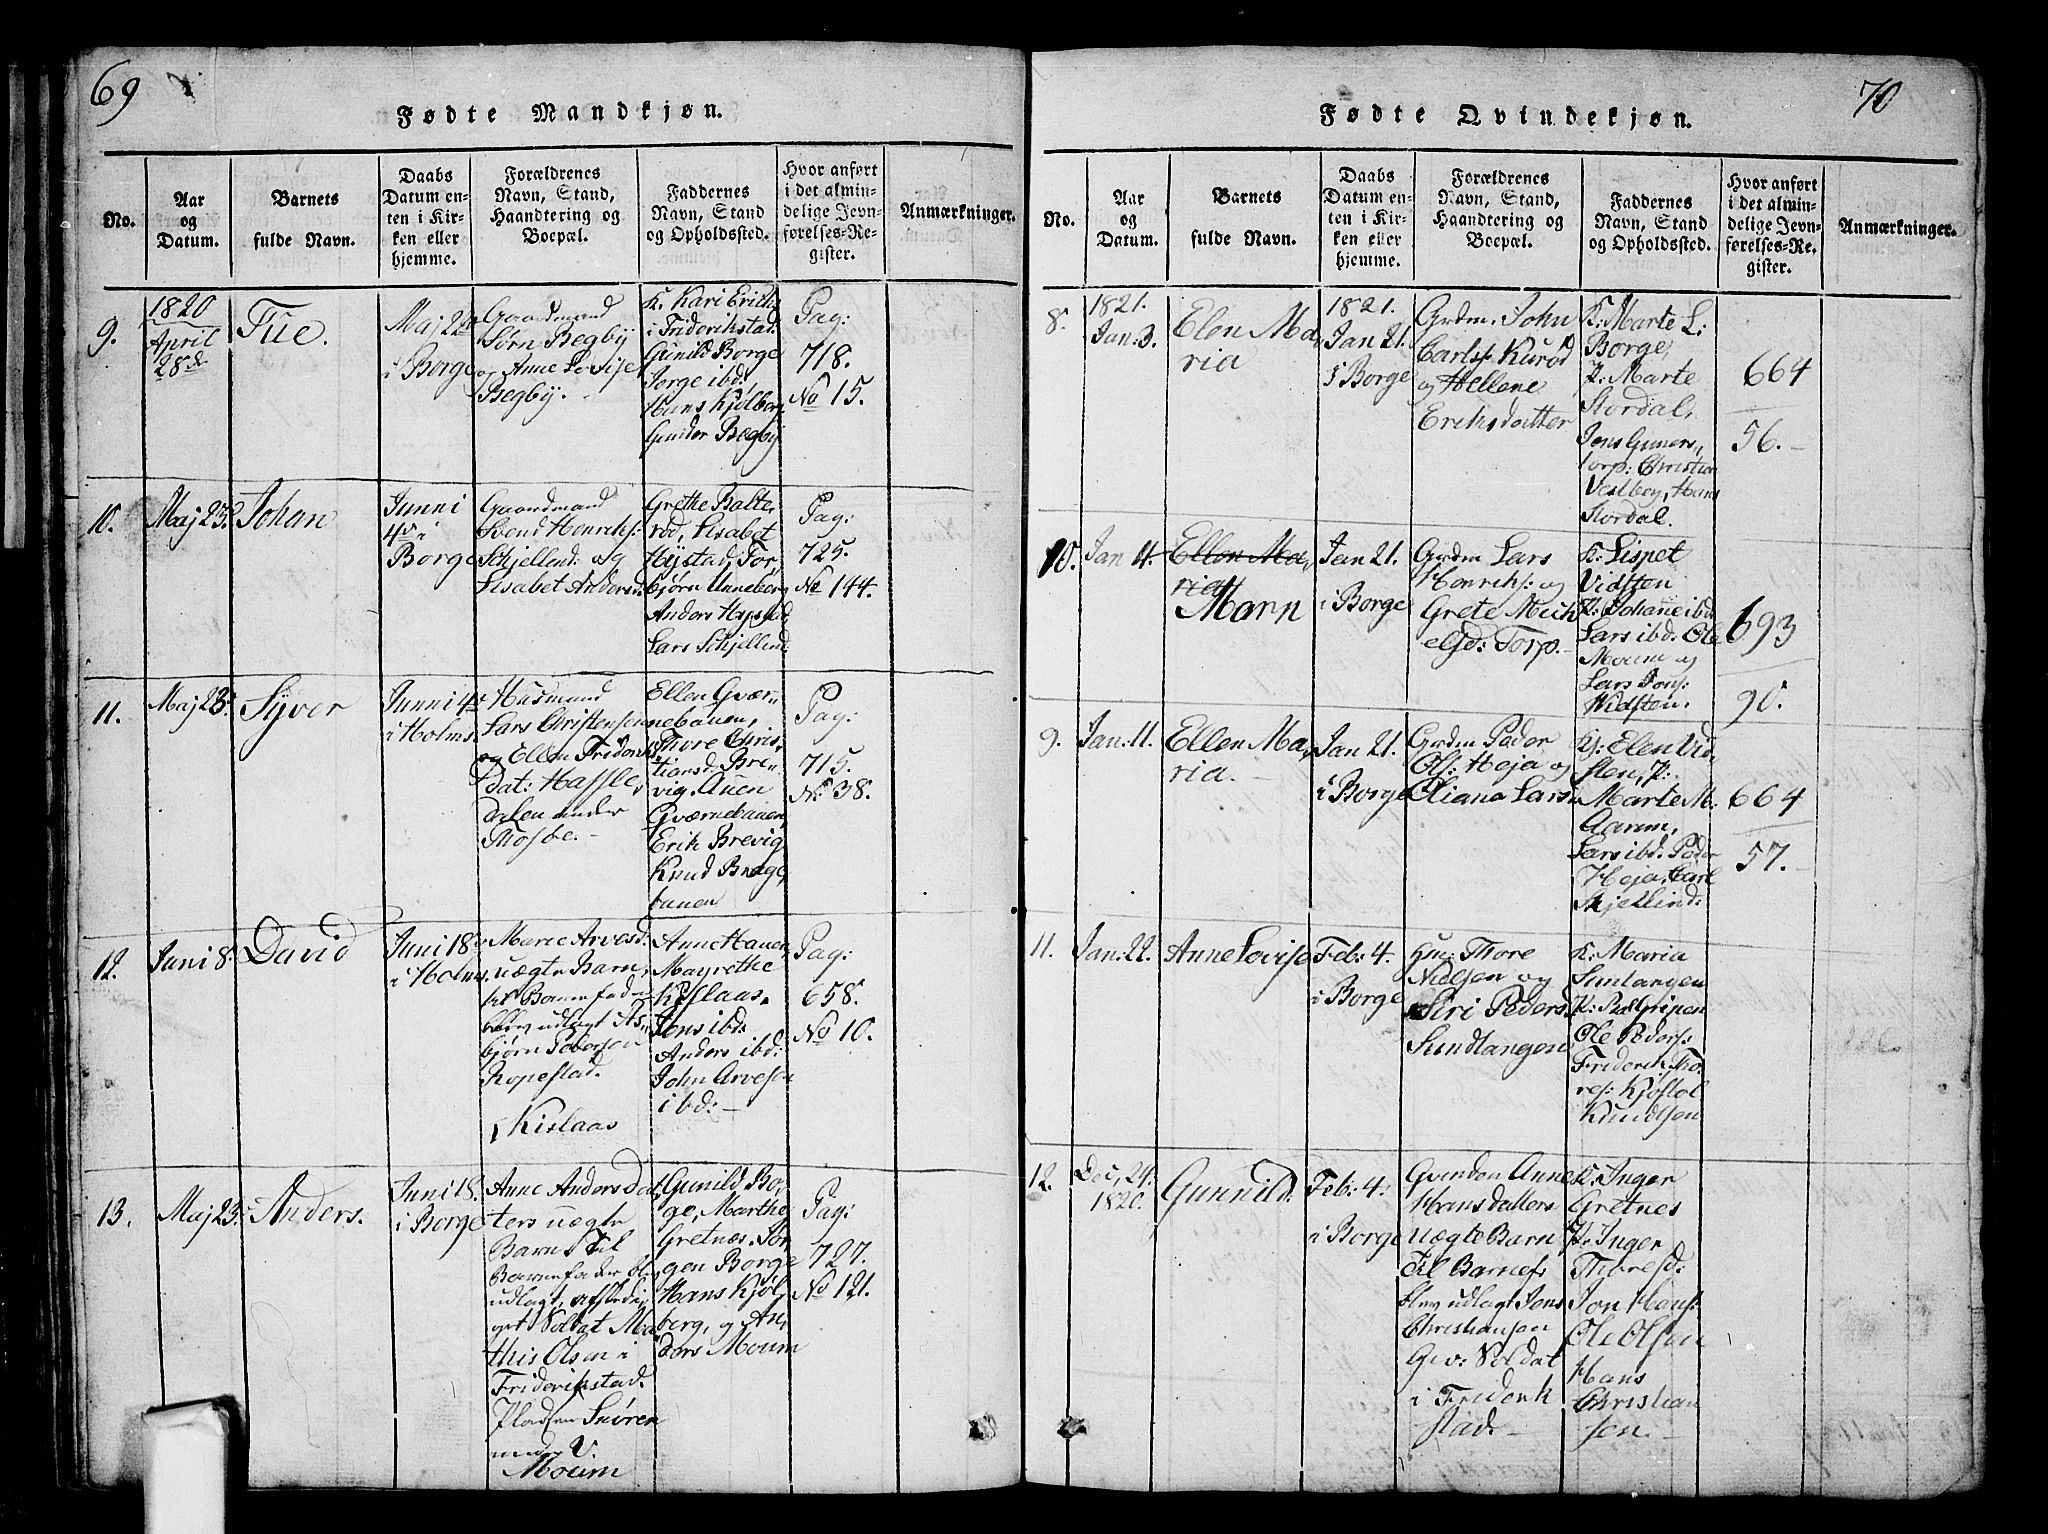 69
Fødte Mandkjøn.
No.
Aar
og
Datum.
Barnets
fulde Navn.
Daabs
Datum en-
ten i Kir-
ken eller
hjemme.
Forældrenes
Navn, Stand,
Haandtering og
Boepæl.
Faddernes
Navn, Stand
og Opholdssted.
Hvor anført
i det almin-
delige Jevn-
førelses-Re-
gister.
Anmærkninger.
9.
1820
April
28de
Tüe.
Maj 22
i Borge
Gaardmand
Sörn Begby
og Anne
Begby.
K. Kari Eriks
i Friderikstad
Gunild Borge
Jörge ibd:
Hans Kjölberg
Gunder Begby
Pag:
718.
No 15.
10.
Maj 23.
Johan
Junni
4 i
Borge
Gaardmand
Svend Henriks:
Schjellend: og
Lisabet Andersd
Grethe Balte,
röd, Lisabet
Höjstad, Tor,
bjørn Unneberg
Anders Högstad
Lars Schjellend
Pag:
725.
No 144.
11.
Maj 23.
Syver
Junni 4
i Holms
Husmand
Lars Christensen
og Ellen Friderik
dat: Hassle,
dalen under
Mosbe.
Ellen Gvær-
nebauen,
Thore Chris,
tiansd. Bre-
vig, Auen
Gværnebauen
Erik Brevig
Knud Brage,
bauen
Pag:
715.
No 38.
12.
Juni 8.
David
Juni 18
i Holms.
Marie Arvesd:
uægte Barn,
til Barnefader
blev udlagt As-
bjørn Petersen
Ropestad.
Kislaas
Anne Hauen,
Magrethe
Kislaas.
Jens ibd:
Anders ibd:
John Arvesen
ibd:
Pag:
658.
No 10.
13.
Maj 23.
Anders.
Juni 18.
i Borge
Anne Anders Dat,
ters uægte
Barn, til
Barnefader blev
udlagt, afskedi,
get Soldat Ma,
this Olsen i
Friderikstad.
Pladsen Snören
under V.
Moum
Gunild Bor,
ge, Marthe
Gretnes. Jör,
gen Borge
Hans Kjöl,
berg, og An,
ders Moum
Pag:
727.
No 121.
70
Fødte Qvindekjøn.
No.
Aar
og
Datum.
Barnets
fulde Navn.
Daabs
Datum en-
ten i Kir-
ken eller
hjemme.
Forældrenes
Navn, Stand,
Haandtering og
Boepæl.
Faddernes
Navn, Stand
og Opholdssted.
Hvor anført
i det almin-
delige Jevn-
førelses-Re-
gister.
Anmærkninger.
8.
1821.
Jan. 3.
Elen Ma,
ria
1821.
Jan 21.
i Borge
Grdm. John
Carls: Kuröd
og Hellene
Eriksdatter
K: Marte L:
Borge,
P: Marte
Stordal,
Jens Guners,
torp: Christian
Vestboy, Hans
Stordal.
664
56.
10.
Jan 4.
Ellen Ma,
ria
Marn
Jan 21.
i Borge
Grdm Lars
Henriks: og
Grete Mich
elsd: Torp.
K: Lispet
Vidsten
P: Johane ibd
Lars ibd: Ole
Moum og
Lars Jens:
Vidsten.
693
90.
9.
Jan: 11.
Ellen Ma,
ria.
Jan 21.
i Borge
Grdm Peder
Ols: Heja og
Eliana Lars
K: Elen Vid,
sten, P:
Marte M:
Aarum,
Lars ibd: Peder
Heja, Carl
Skjellind:
664
57.
11.
Jan: 22.
Anne Lovise
Feb: 4.
i Borge
Hm: Thore
Nielsen og
Siri Peders
Sundlangen
K: Maria
Sunlangen
P: Gripen
Ole Peders:
Friderik Tho
res: Kjöstol
Knudsen
12.
Dec, 24.
1820.
Gunnild.
Feb: 4.
i Borge
Qvinden Anne
Hansdatters
uægte Barn
Til Barnef:
blev udlagt Jens
Christiansen
Gev: Soldat
i Friderik
stad.
K: Inger
Gretnes
P: Inger
Thoresd:
Jon Hans:
Ole Olsen
Hans
Christian
sen.